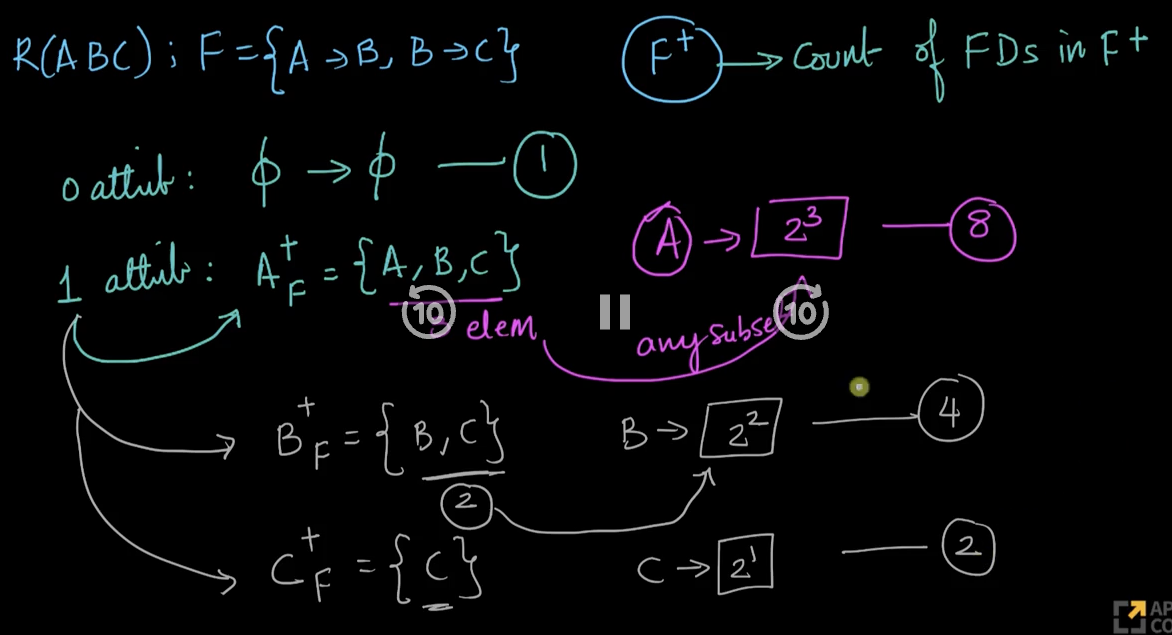 R(ABC) ; F = {A → B, B → C} F⁺ → Count of FDs in F+
0 attrib : ϕ → ϕ — 1
1 attrib : A⁺F = {A, B, C} A → 2³ — 8
10 10
elem any subset
B⁺F = {B, C} B → 2² — 4
2
C⁺F = {C} C → 2¹ — 2
AP
CO